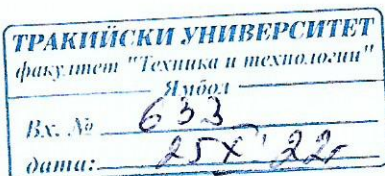 ТРАКИЙСКИ УНИВЕРСИТЕТ
факултет "Техника и технологии"
Ямбол
Вх. № 633
дата: 25 X 22г